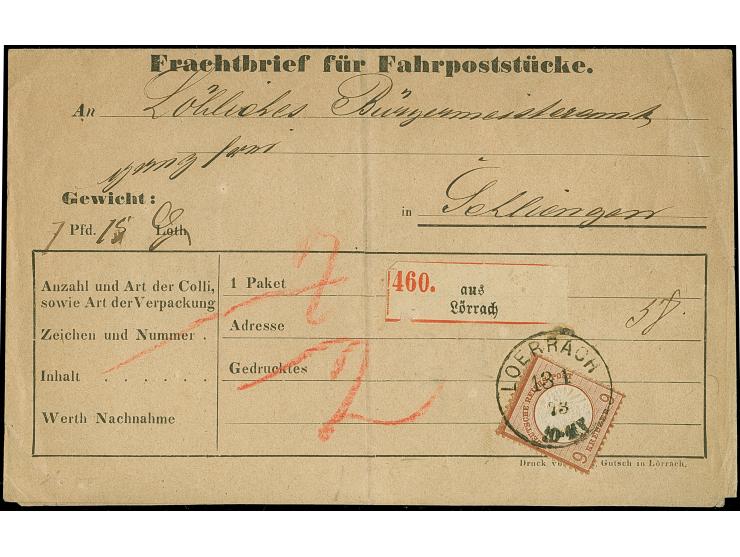 Frachtbrief für Fahrpoststücke.
An Löbliches Bürgermeisteramt
Gewicht:
7 Pfd. 15 Loth
in Schliengen
Anzahl und Art der Colli,
sowie Art der Verpackung
1 Paket
460.
aus
Lörrach
Zeichen und Nummer.
Adresse
58.
Inhalt . . . . . .
Gedrucktes
Werth Nachnahme
LOERRACH
13 1
73
DEUTSCHE REICHS-POST
9
KREUZER
9
Gutsch in Lörrach.